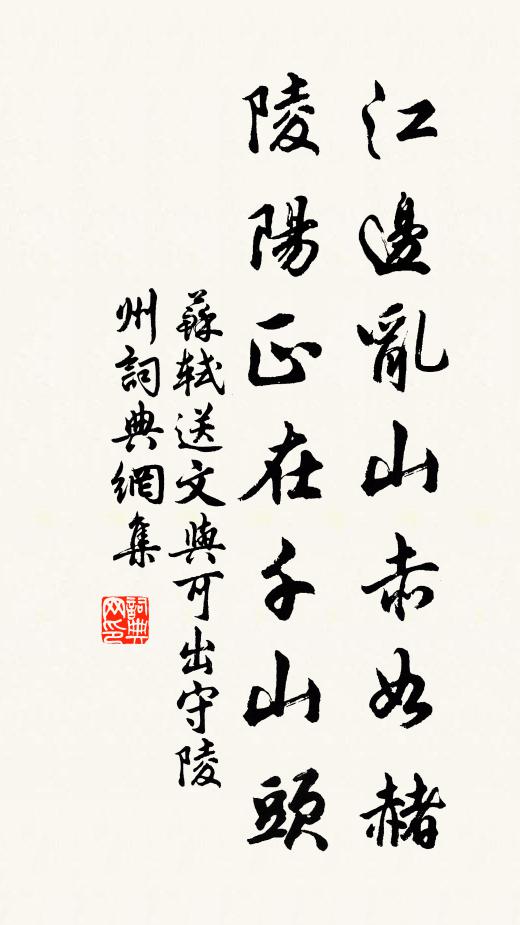 江邊亂山赤如赭
陵陽正在千山頭
蘇軾送文與可出守陵
州詞典網集
詞典
网印